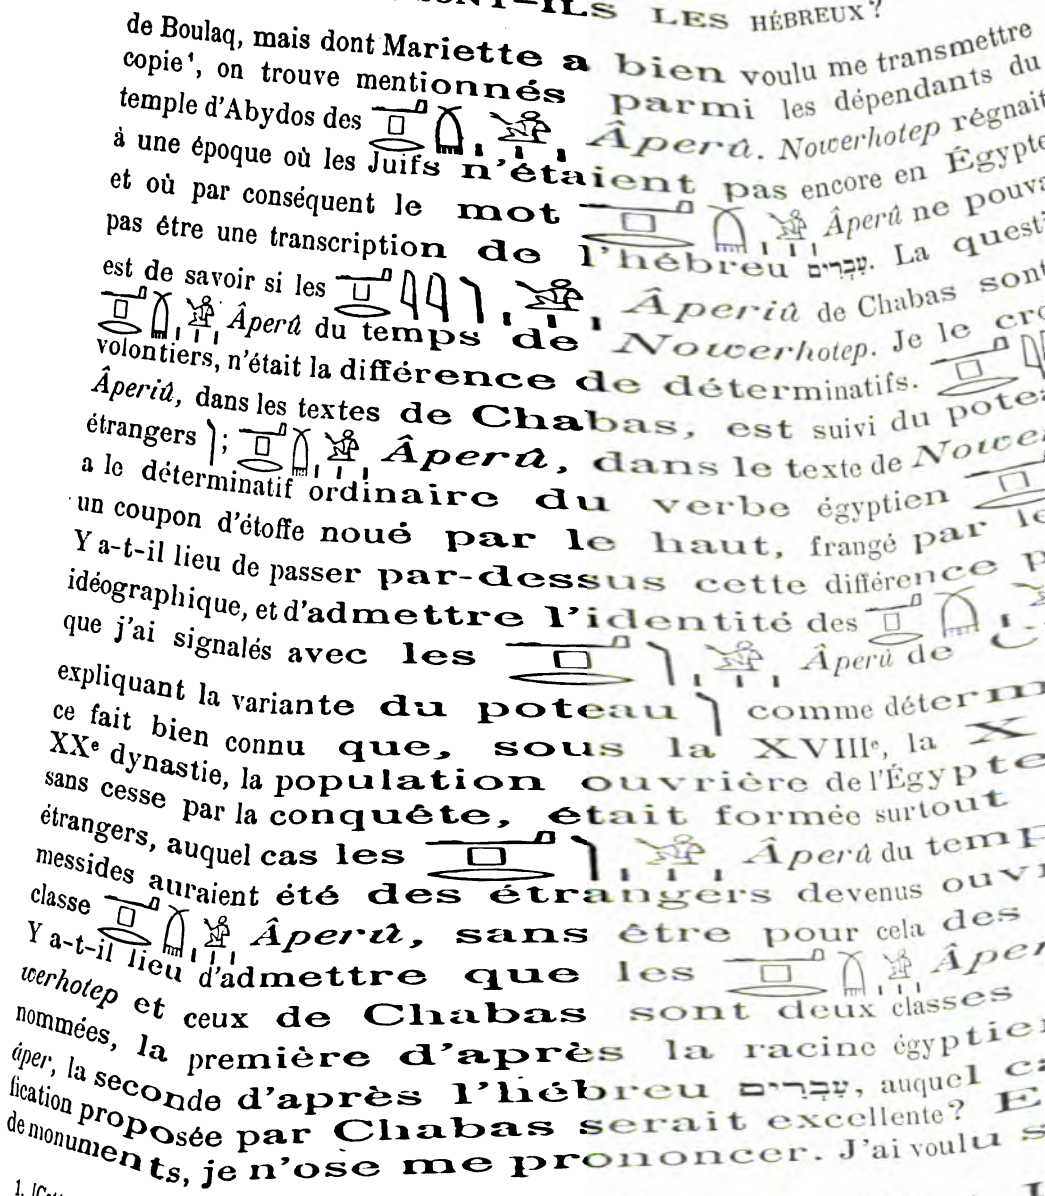 LES HÉBREUX?
de Boulaq, mais dont Mariette a bien voulu me transmettre
copie¹, on trouve mentionnés parmi les dépendants du
temple d'Abydos des Âperû. Nowerhotep régnait
à une époque où les Juifs n'étaient pas encore en Égypte
et où par conséquent le mot Âperû ne
pas être une transcription de l'hébreu עִבְרִים. La
est de savoir si les Âperiû de Chabas sont
Âperû du temps de Nowerhotep. Je le
volontiers, n'était la différence de déterminatifs.
Âperiû, dans les textes de Chabas, est suivi du
étrangers ; Âperû, dans le texte de
a le déterminatif ordinaire du verbe égyptien
un coupon d'étoffe noué par le haut, frangé par
Y a-t-il lieu de passer par-dessus cette différence
idéographique, et d'admettre l'identité des
que j'ai signalés avec les Âperû de
expliquant la variante du poteau comme
ce fait bien connu que, sous la XVIIIᵉ, la
XXᵉ dynastie, la population ouvrière de l'Égypte
sans cesse par la conquête, était formée surtout
étrangers, auquel cas les Âperû du
messides auraient été des étrangers devenus
classe Âperû, sans être pour cela des
Y a-t-il lieu d'admettre que les
werhotep et ceux de Chabas sont deux classes
nommées, la première d'après la racine
âper, la seconde d'après l'hébreu עִבְרִים, auquel
fication proposée par Chabas serait excellente?
de monuments, je n'ose me prononcer. J'ai voulu